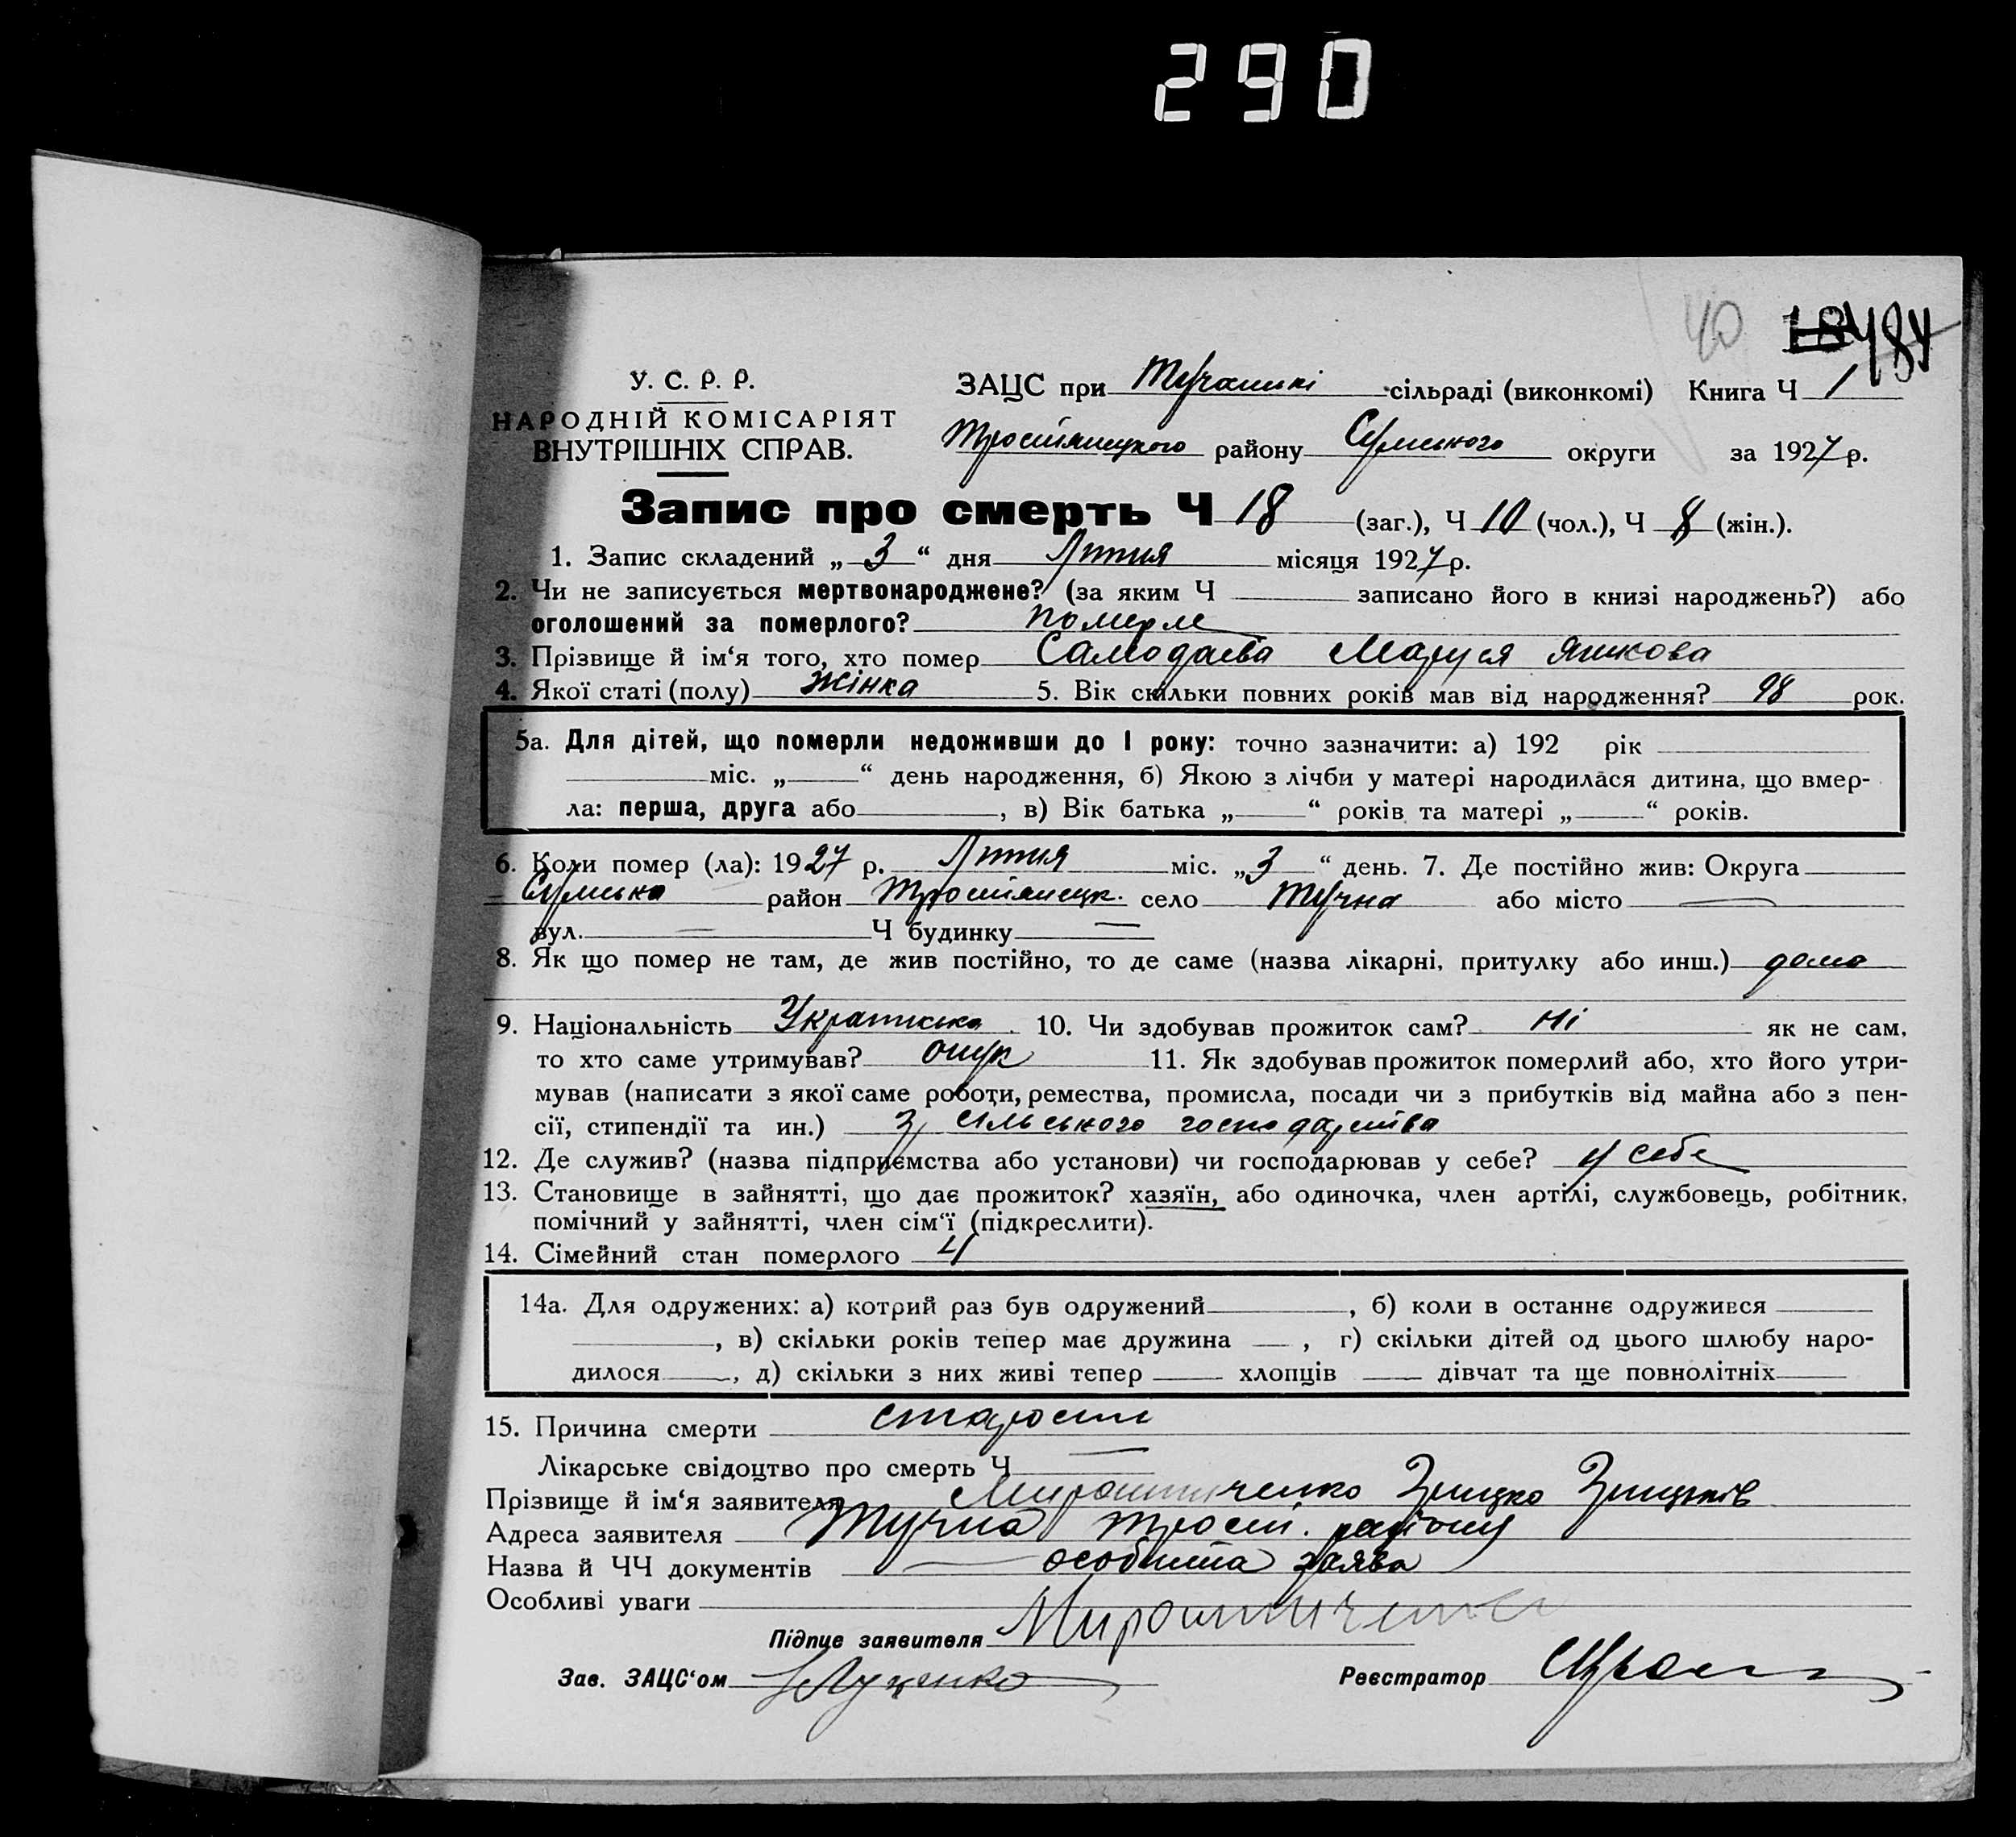 290
40 184 484
У. С. Р. Р.
НАРОДНІЙ КОМІСАРІЯТ
ВНУТРІШНІХ СПРАВ.
ЗАЦС при Тучанські сільраді (виконкомі) Книга Ч 1
Тростянецкого району Сумського округи за 1927 р.
Запис про смерть Ч 18 (заг.), Ч 10 (чол.), Ч 8 (жін.).
1. Запис складений „ 3 “ дня Липня місяця 1927 р.
2. Чи не записується мертвонароджене? (за яким Ч записано його в книзі народжень?) або
оголошений за померлого? померле
3. Прізвище й ім‘я того, хто помер Самодаєва Маруся Яшкова
4. Якої статі (полу) жінка 5. Вік скільки повних років мав від народження? 98 рок.
5а. Для дітей, що померли недоживши до І року: точно зазначити: а) 192 рік
міс. „ “ день народження, б) Якою з лічби у матері народилася дитина, що вмер-
ла: перша, друга або , в) Вік батька „ “ років та матері „ “ років.
6. Коли помер (ла): 1927 р. Липня міс. „3 “ день. 7. Де постійно жив: Округа
Сумська район Тростянецк. село Тучна або місто —
вул. — Ч будинку —
8. Як що помер не там, де жив постійно, то де саме (назва лікарні, притулку або инш.) дома
9. Національність Українська 10. Чи здобував прожиток сам? Ні як не сам,
то хто саме утримував? 11. Як здобував прожиток померлий або, хто його утри-
мував (написати з якої саме роботи, ремества, промисла, посади чи з прибутків від майна або з пен-
сії, стипендії та ин.) З сільського господарства
12. Де служив? (назва підприємства або установи) чи господарював у себе? у себе
13. Становище в зайнятті, що дає прожиток? хазяїн, або одиночка, член артілі, службовець, робітник,
помічний у зайнятті, член сім‘ї (підкреслити).
14. Сімейний стан померлого
14а. Для одружених: а) котрий раз був одружений , б) коли в останнє одружився
, в) скільки років тепер має дружина , г) скільки дітей од цього шлюбу наро-
дилося , д) скільки з них живі тепер хлопців дівчат та ще повнолітніх
15. Причина смерти старости
Лікарське свідоцтво про смерть Ч —
Прізвище й ім‘я заявителя Мирошниченко Грицко Грицьків
Адреса заявителя Тучна Трост. району
Назва й ЧЧ документів особиста заява
Особливі уваги
Підпис заявителя Мирошниченко
Зав. ЗАЦС‘ом Луценко Реєстратор